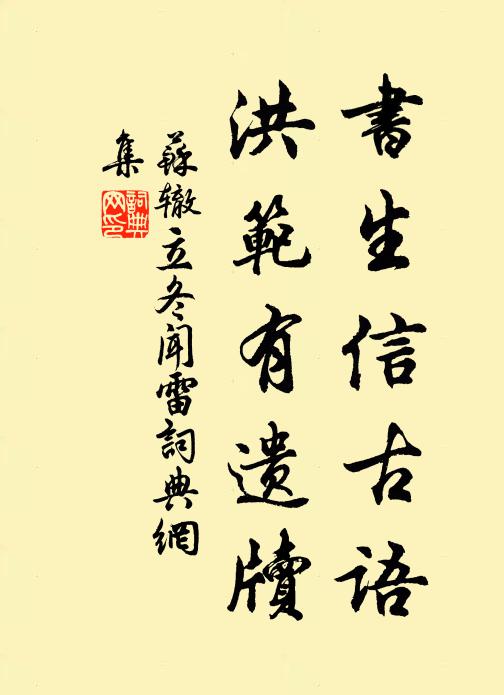 書生信古語
洪範有遺牘
蘇辙立冬闻雷詞典網
集
詞典
网印